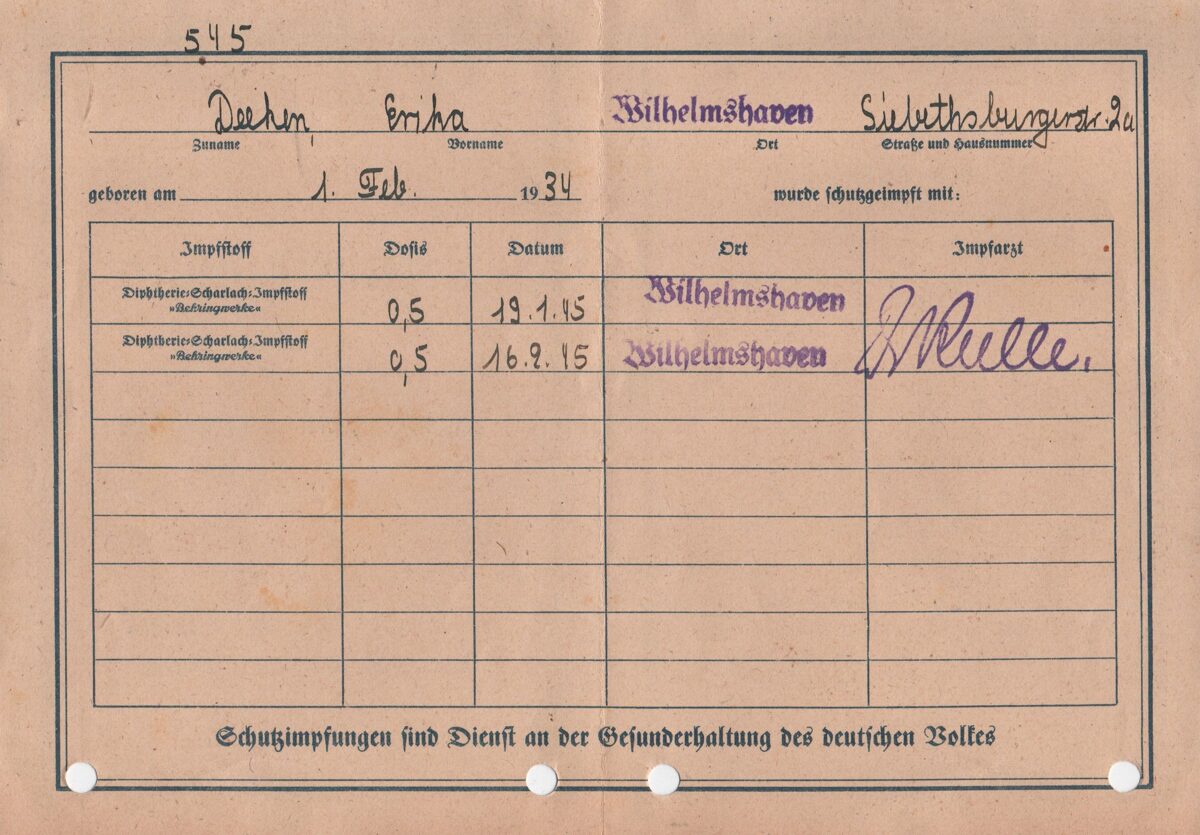 545
Deeken, Erika Wilhelmshaven Siebethsburgerstr. 2a
Zuname Vorname Ort Straße und Hausnummer
geboren am 1. Feb. 1934 wurde schutzgeimpft mit:
Impfstoff Dosis Datum Ort Impfarzt
Diphtherie-Scharlach-Impfstoff
»Behringwerke« 0,5 19.1.45 Wilhelmshaven
Diphtherie-Scharlach-Impfstoff
»Behringwerke« 0,5 16.2.45 Wilhelmshaven
Schutzimpfungen sind Dienst an der Gesunderhaltung des deutschen Volkes